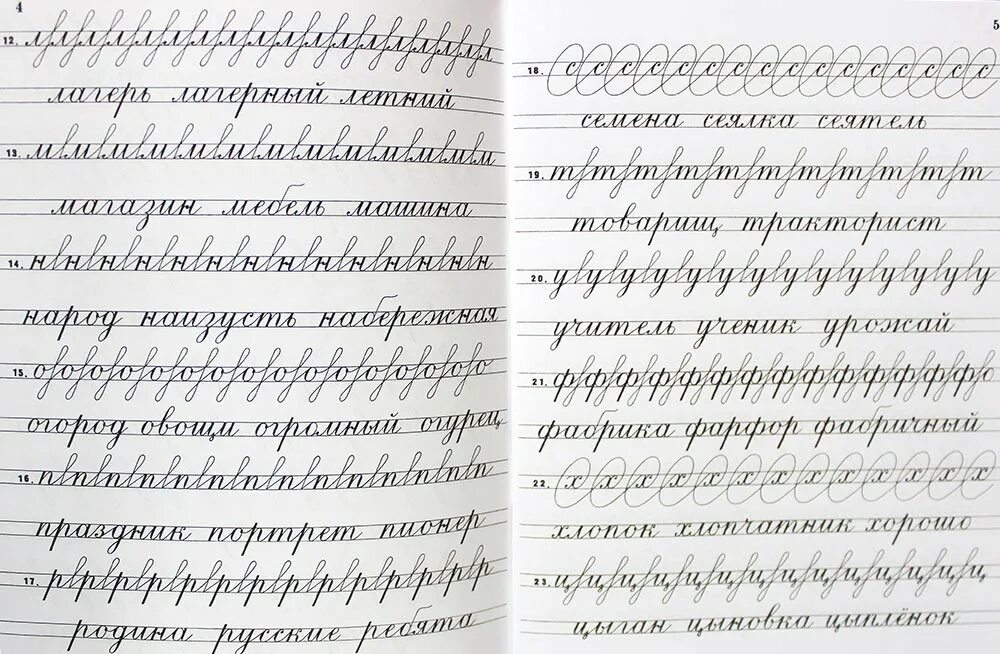 4
12. л л л л л л л л л л л л л л л л л
лагерь лагерный летний
13. м м м м м м м м м м м м м
магазин мебель машина
14. н н н н н н н н н н н н н н
народ наизусть набережная
15. о о о о о о о о о о о о о о о о
огород овощи огромный огурец
16. п п п п п п п п п п п п п п
праздник портрет пионер
17. р р р р р р р р р р р р р р р
родина русские ребята
5
18. с с с с с с с с с с с с с с с с
семена сеялка сеятель
19. т т т т т т т т т т т т т
товарищ тракторист
20. у у у у у у у у у у у у у у у
учитель ученик урожай
21. ф ф ф ф ф ф ф ф ф ф ф ф ф ф
фабрика фарфор фабричный
22. х х х х х х х х х х х х х
хлопок хлопчатник хорошо
23. ц ц ц ц ц ц ц ц ц ц ц ц ц ц ц
цыган цыновка цыплёнок